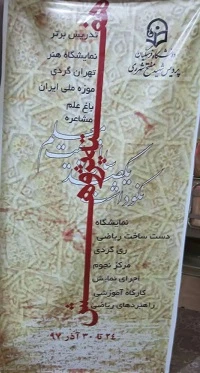 دانشگاه فرهنگیان
پردیس شهید مفتح شهرری
هفته پژوهش
تدریس برتر
نمایشگاه هنر
تهران گردی
موزه ملی ایران
باغ علم
مشاعره
نکوداشت
نمایشگاه
دست ساخت ریاضی
ری گردی
مرکز نجوم
اجرای نمایش
کارگاه آموزشی
راهبردهای ریاضی
۲۴ تا ۳۰ آذر ۹۷